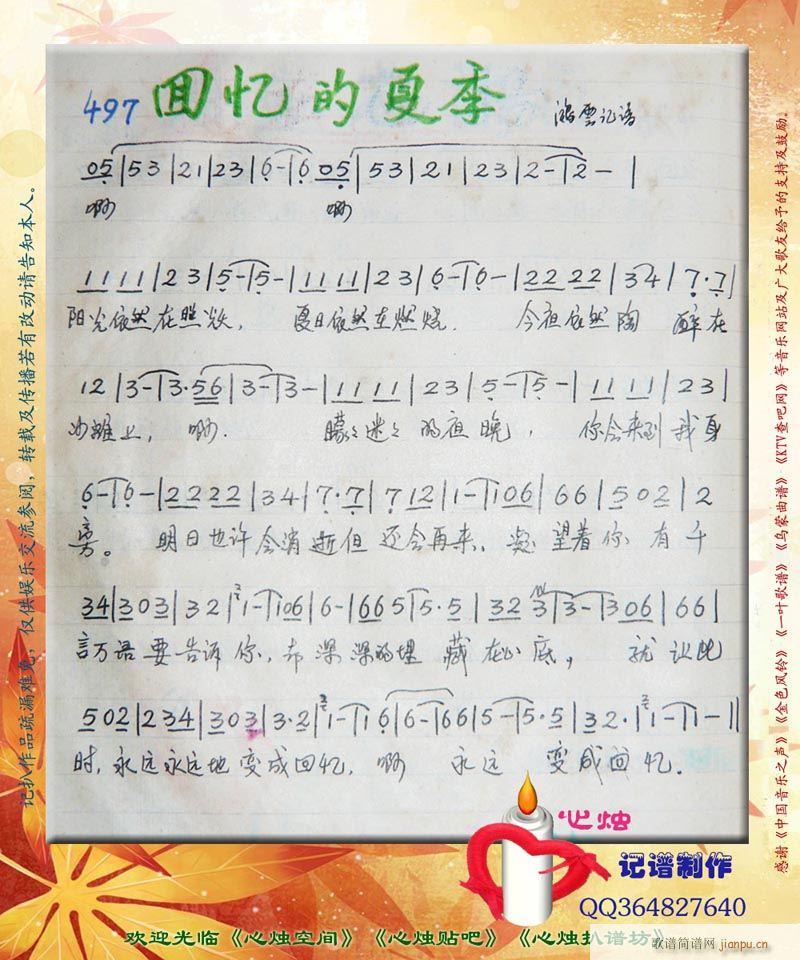 497 回忆的夏季 鸿雲记谱
05|53|21|23|6-|6 05|53|21|23|2-|2-|
啊 啊
1111|23|5-|5-|1111|23|6-|6-|2222|34|7·7|
阳光依然在照耀, 夏日依然在燃烧. 今夜依然陶 醉在
12|3-|3·56|3-|3-|1111|23|5-|5-|1111|23|
沙滩上, 啊. 朦々迷々的夜晚, 你会来到我身
6-|6-|2222|34|7·7|712|1-|106|66|502|2
旁。 明日也许会消逝但还会再来、凝望着你有千
34|303|32|1-|106|6-|665|5·5|32 3|3-|306|66|
言万语要告诉你、却深深的埋藏在心底, 就让此
502|234|303|3·2|1-|16|6-|66|5-|5·5|32·|1-|1-||
时,永远永远地变成回忆, 啊 永远 变成回忆.
记扒作品疏漏难免,仅供娱乐交流参阅,转载及传播若有改动请告知本人。
感谢《中国音乐之声》《金色风铃》《一叶歌谱》《乌蒙曲谱》《KTV查吧网》等音乐网站及广大歌友给予的支持及鼓励。
心烛
记谱制作
QQ364827640
欢迎光临《心烛空间》《心烛贴吧》《心烛扒谱坊》
歌谱简谱网 jianpu.cn